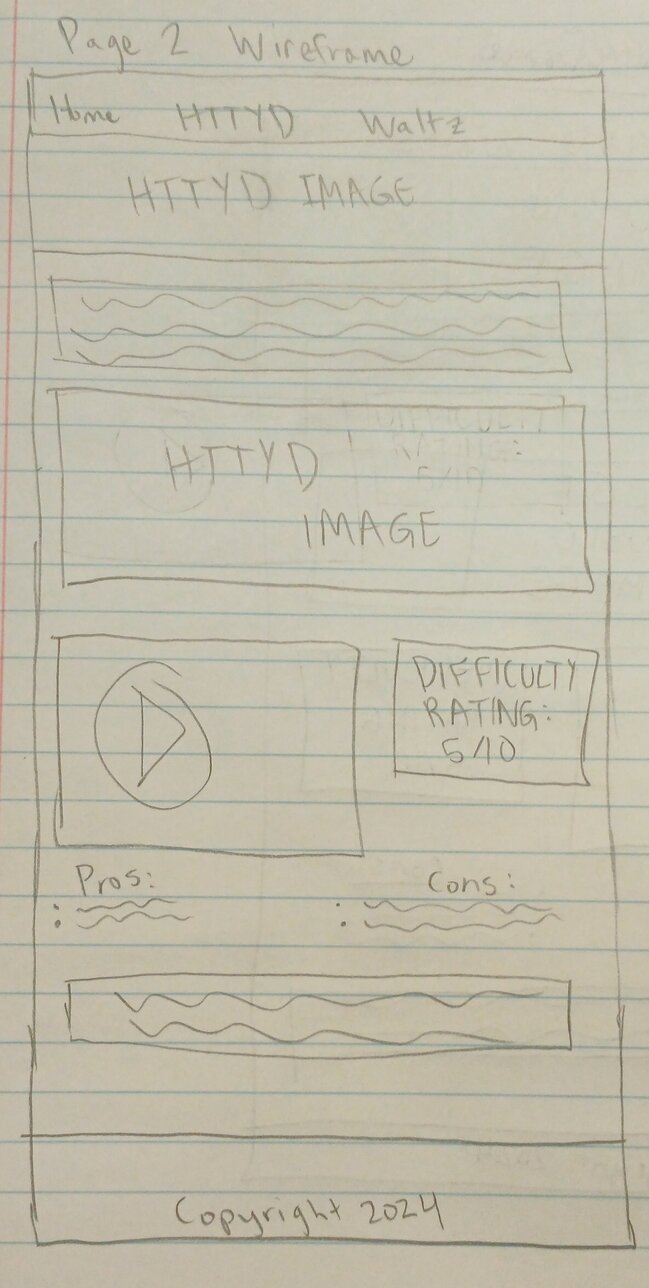 Page 2 Wireframe
Home HTTYD Waltz
HTTYD IMAGE
HTTYD
IMAGE
DIFFICULTY
RATING:
5/10
Pros: Cons:
Copyright 2024